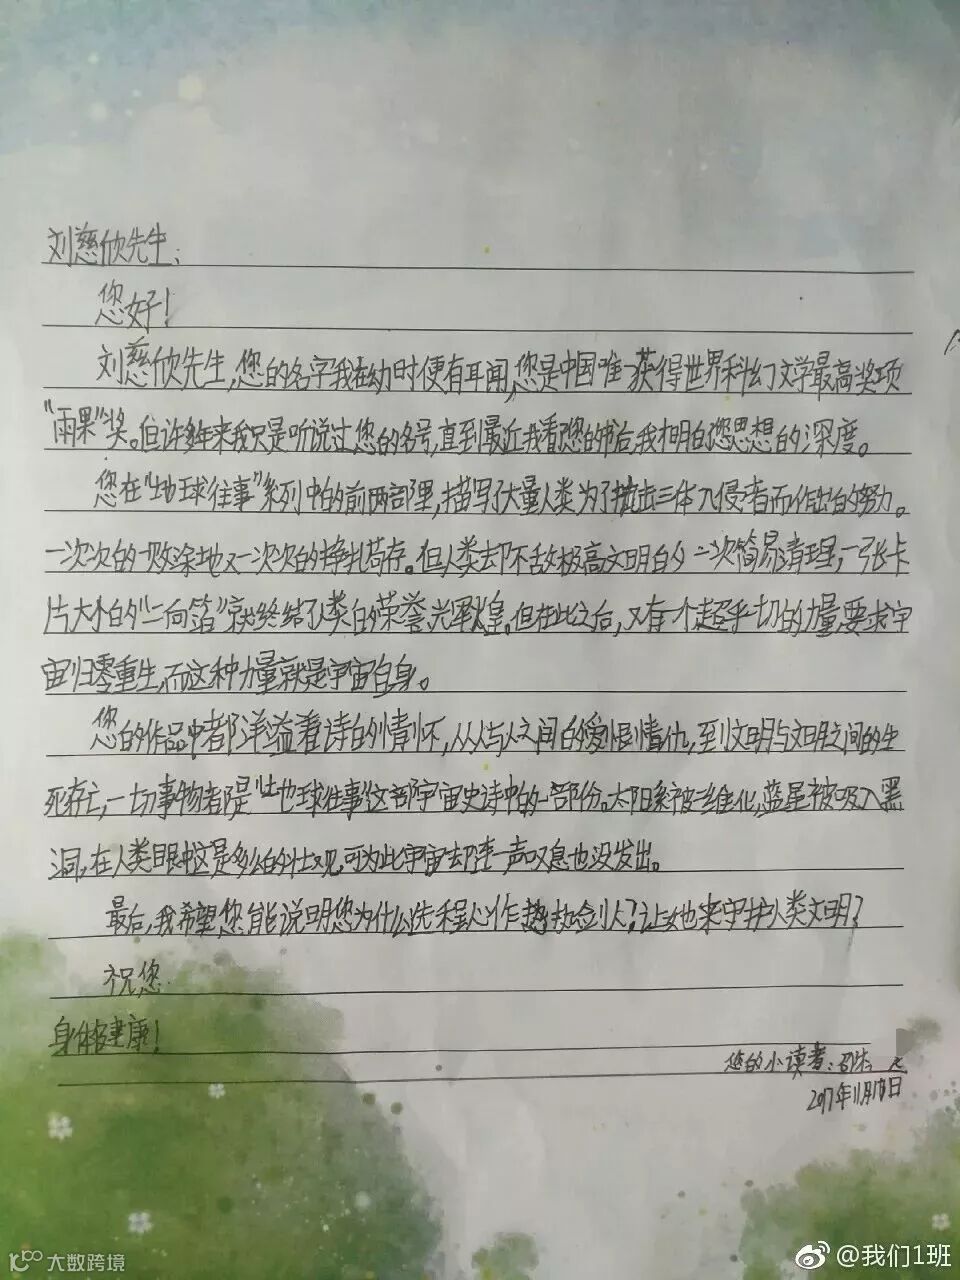 刘慈欣先生:
您好!
刘慈欣先生,您的名字我在幼时便有耳闻,您是中国唯一获得世界科幻文学最高奖项
"雨果"奖。但许多年来我只是听说过您的名号,直到最近我看您的书后,我才明白您思想的深度。
您在"地球往事"系列中的前两部里,描写了大量人类为了抗击三体入侵者而作出的努力。
一次次的一败涂地又一次次的挣扎苟存。但人类却不敌极高文明的一次简易清理,一张卡
片大小的"二向箔"就终结了人类的荣誉光辉煌。但在此之后,又有一个超乎一切的力量要求宇
宙归零重生,而这种力量就是宇宙自身。
您的作品中都洋溢着诗的情怀,从人与人之间的爱恨情仇,到文明与文明之间的生
死存亡,一切事物都是"地球往事"这部宇宙史诗中的一部份。太阳系被二维化,蓝星被吸入黑
洞,在人类眼中这是多么的壮观,可为此宇宙却连一声叹息也没发出。
最后,我希望您能说明您为什么选程心作为执剑人?让她来守护人类文明?
祝您
身体健康!
您的小读者:邵
2017年11月18日
大数跨境
@我们1班